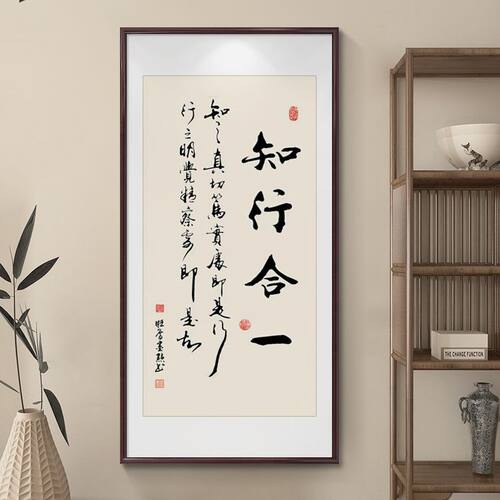 知行合一
知之真切篤實處即是行
行之明覺精察處即是知
THE CHANGE FUNCTION